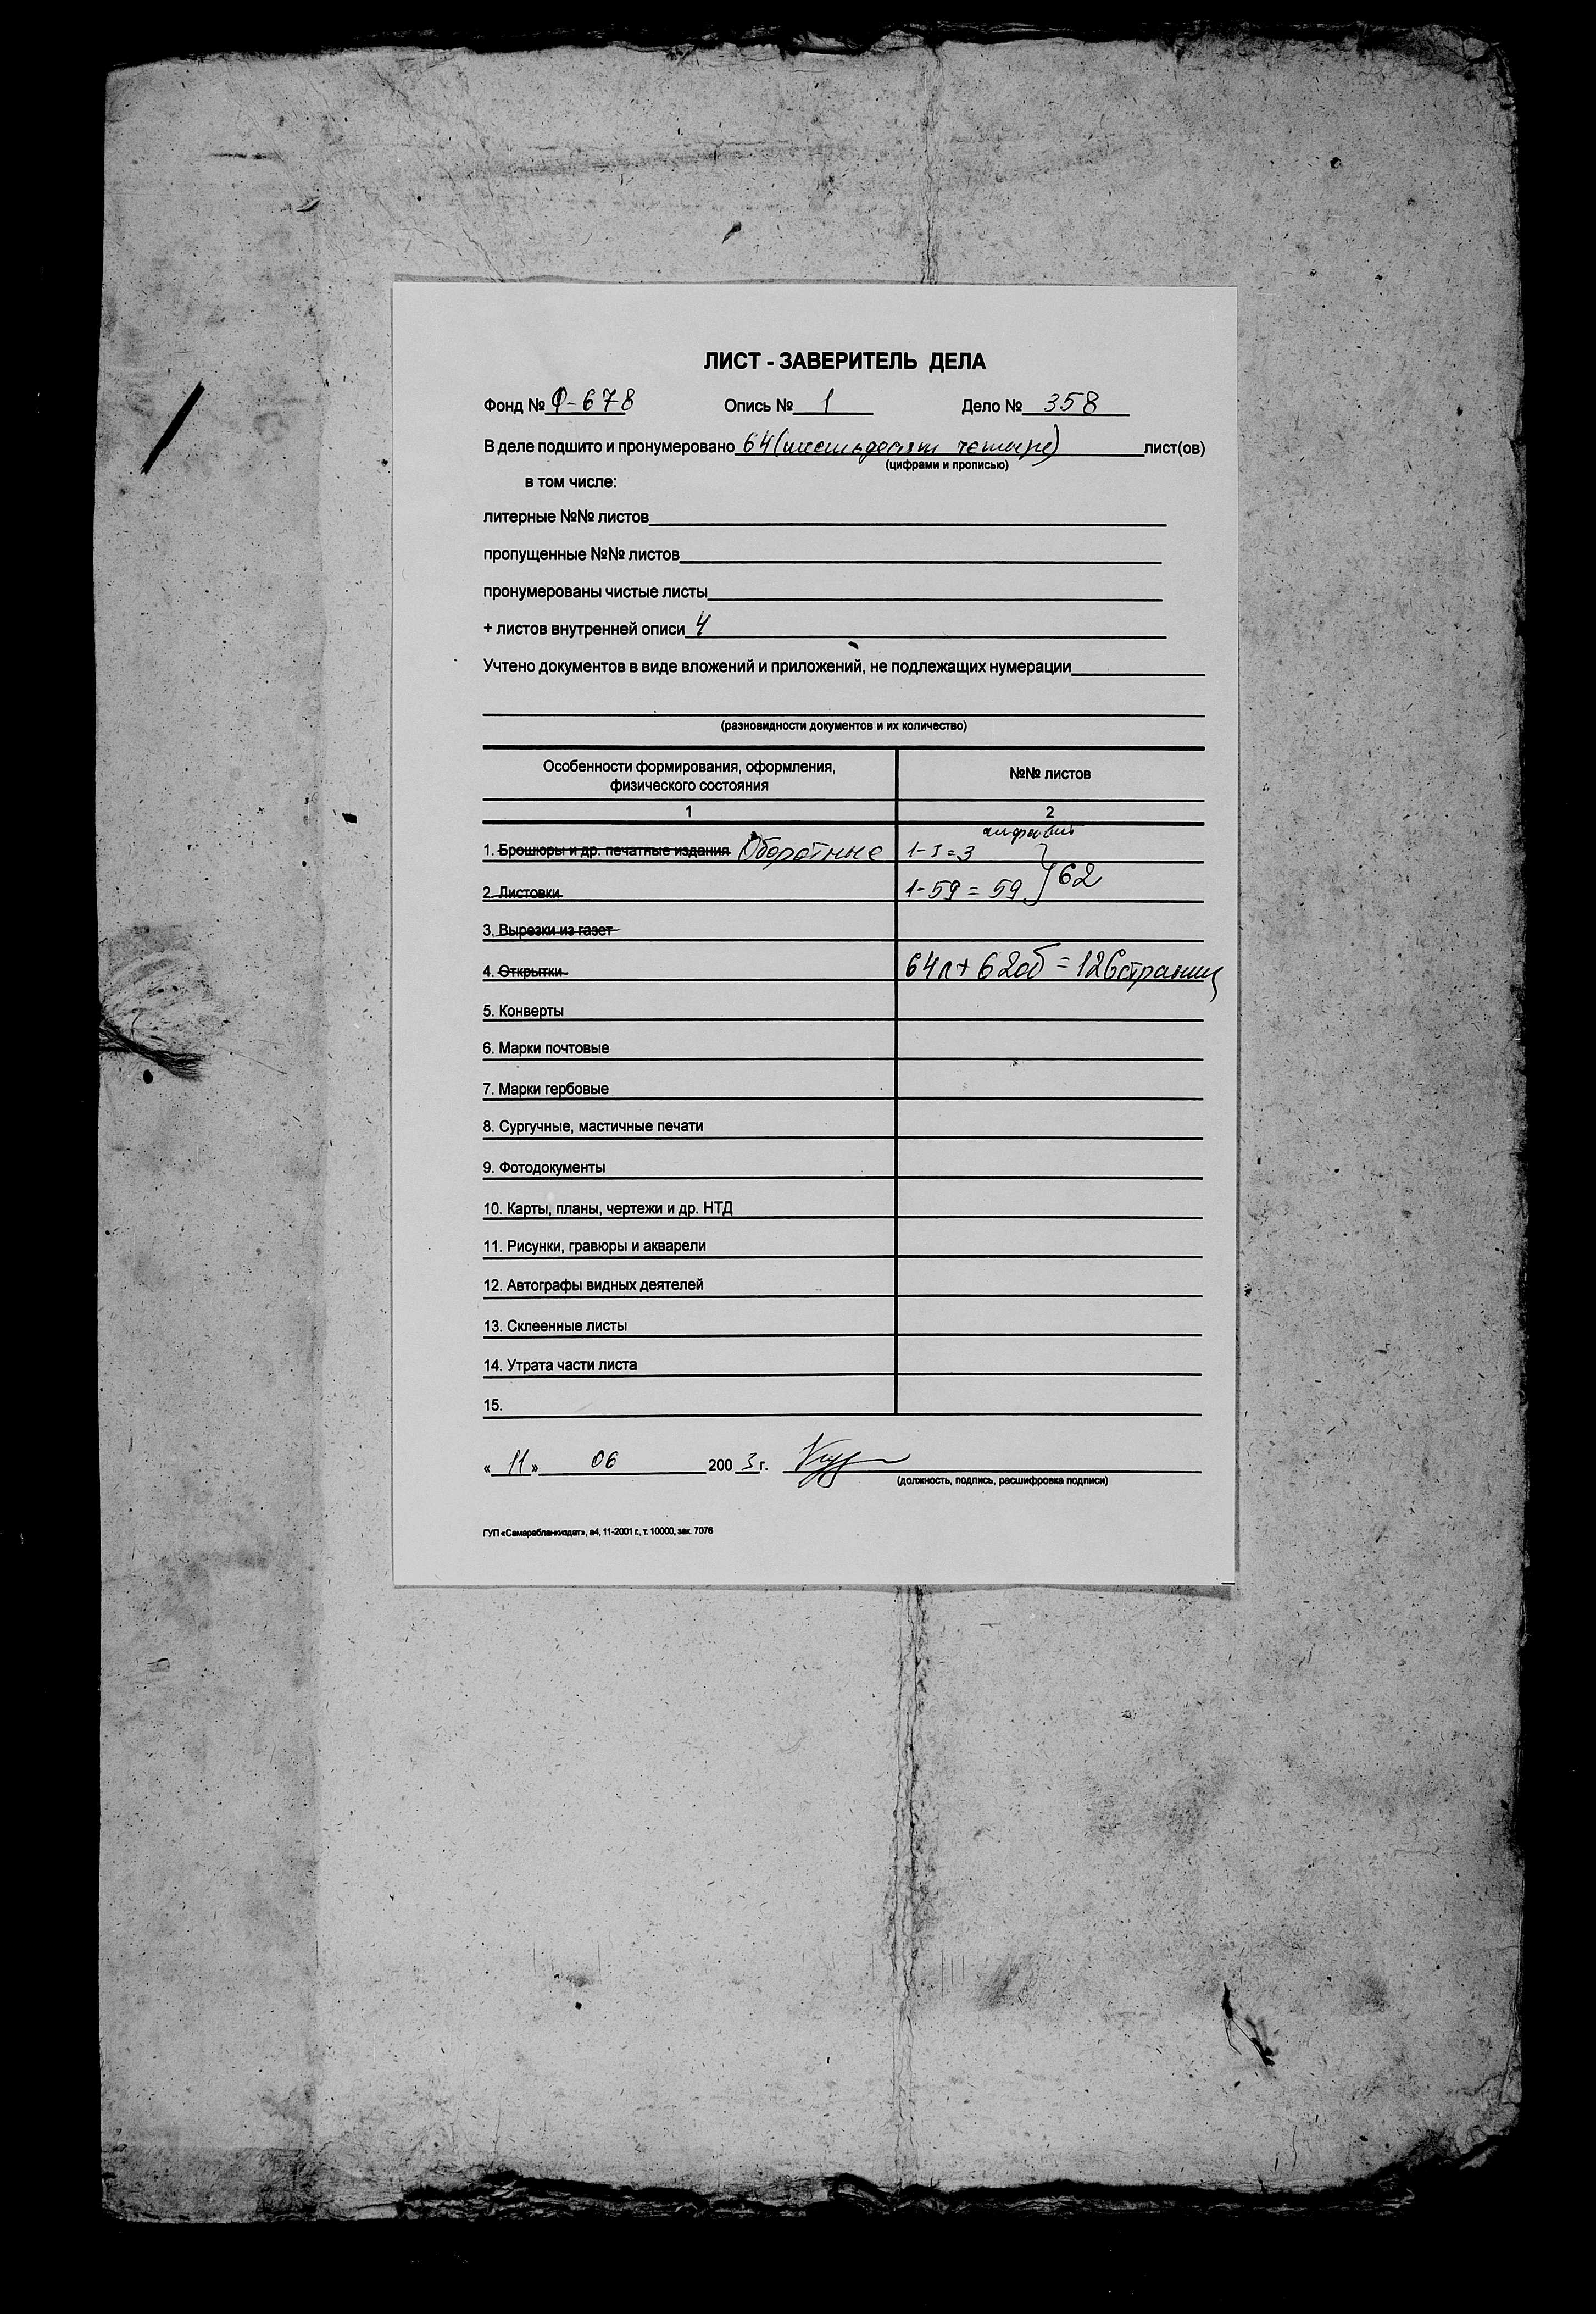 ЛИСТ - ЗАВЕРИТЕЛЬ ДЕЛА
Фонд № Ф-678 Опись № 1 Дело № 358
В деле подшито и пронумеровано 64 (шестьдесят четыре) лист(ов)
(цифрами и прописью)
в том числе:
литерные №№ листов
пропущенные №№ листов
пронумерованы чистые листы
+ листов внутренней описи 4
Учтено документов в виде вложений и приложений, не подлежащих нумерации
(разновидности документов и их количество)
Особенности формирования, оформления, №№ листов
физического состояния
1 2
алфавит
1. Брошюры и др. печатные издания Оборотные 1-3=3
2. Листовки 1-59 = 59 } 62
3. Вырезки из газет
4. Открытки 64л + 62об = 126 страниц
5. Конверты
6. Марки почтовые
7. Марки гербовые
8. Сургучные, мастичные печати
9. Фотодокументы
10. Карты, планы, чертежи и др. НТД
11. Рисунки, гравюры и акварели
12. Автографы видных деятелей
13. Склеенные листы
14. Утрата части листа
15.
« 11 » 06 200 3 г.
(должность, подпись, расшифровка подписи)
ГУП «Самарабланкиздат», а4, 11-2001 г., т. 10000, зак. 7076